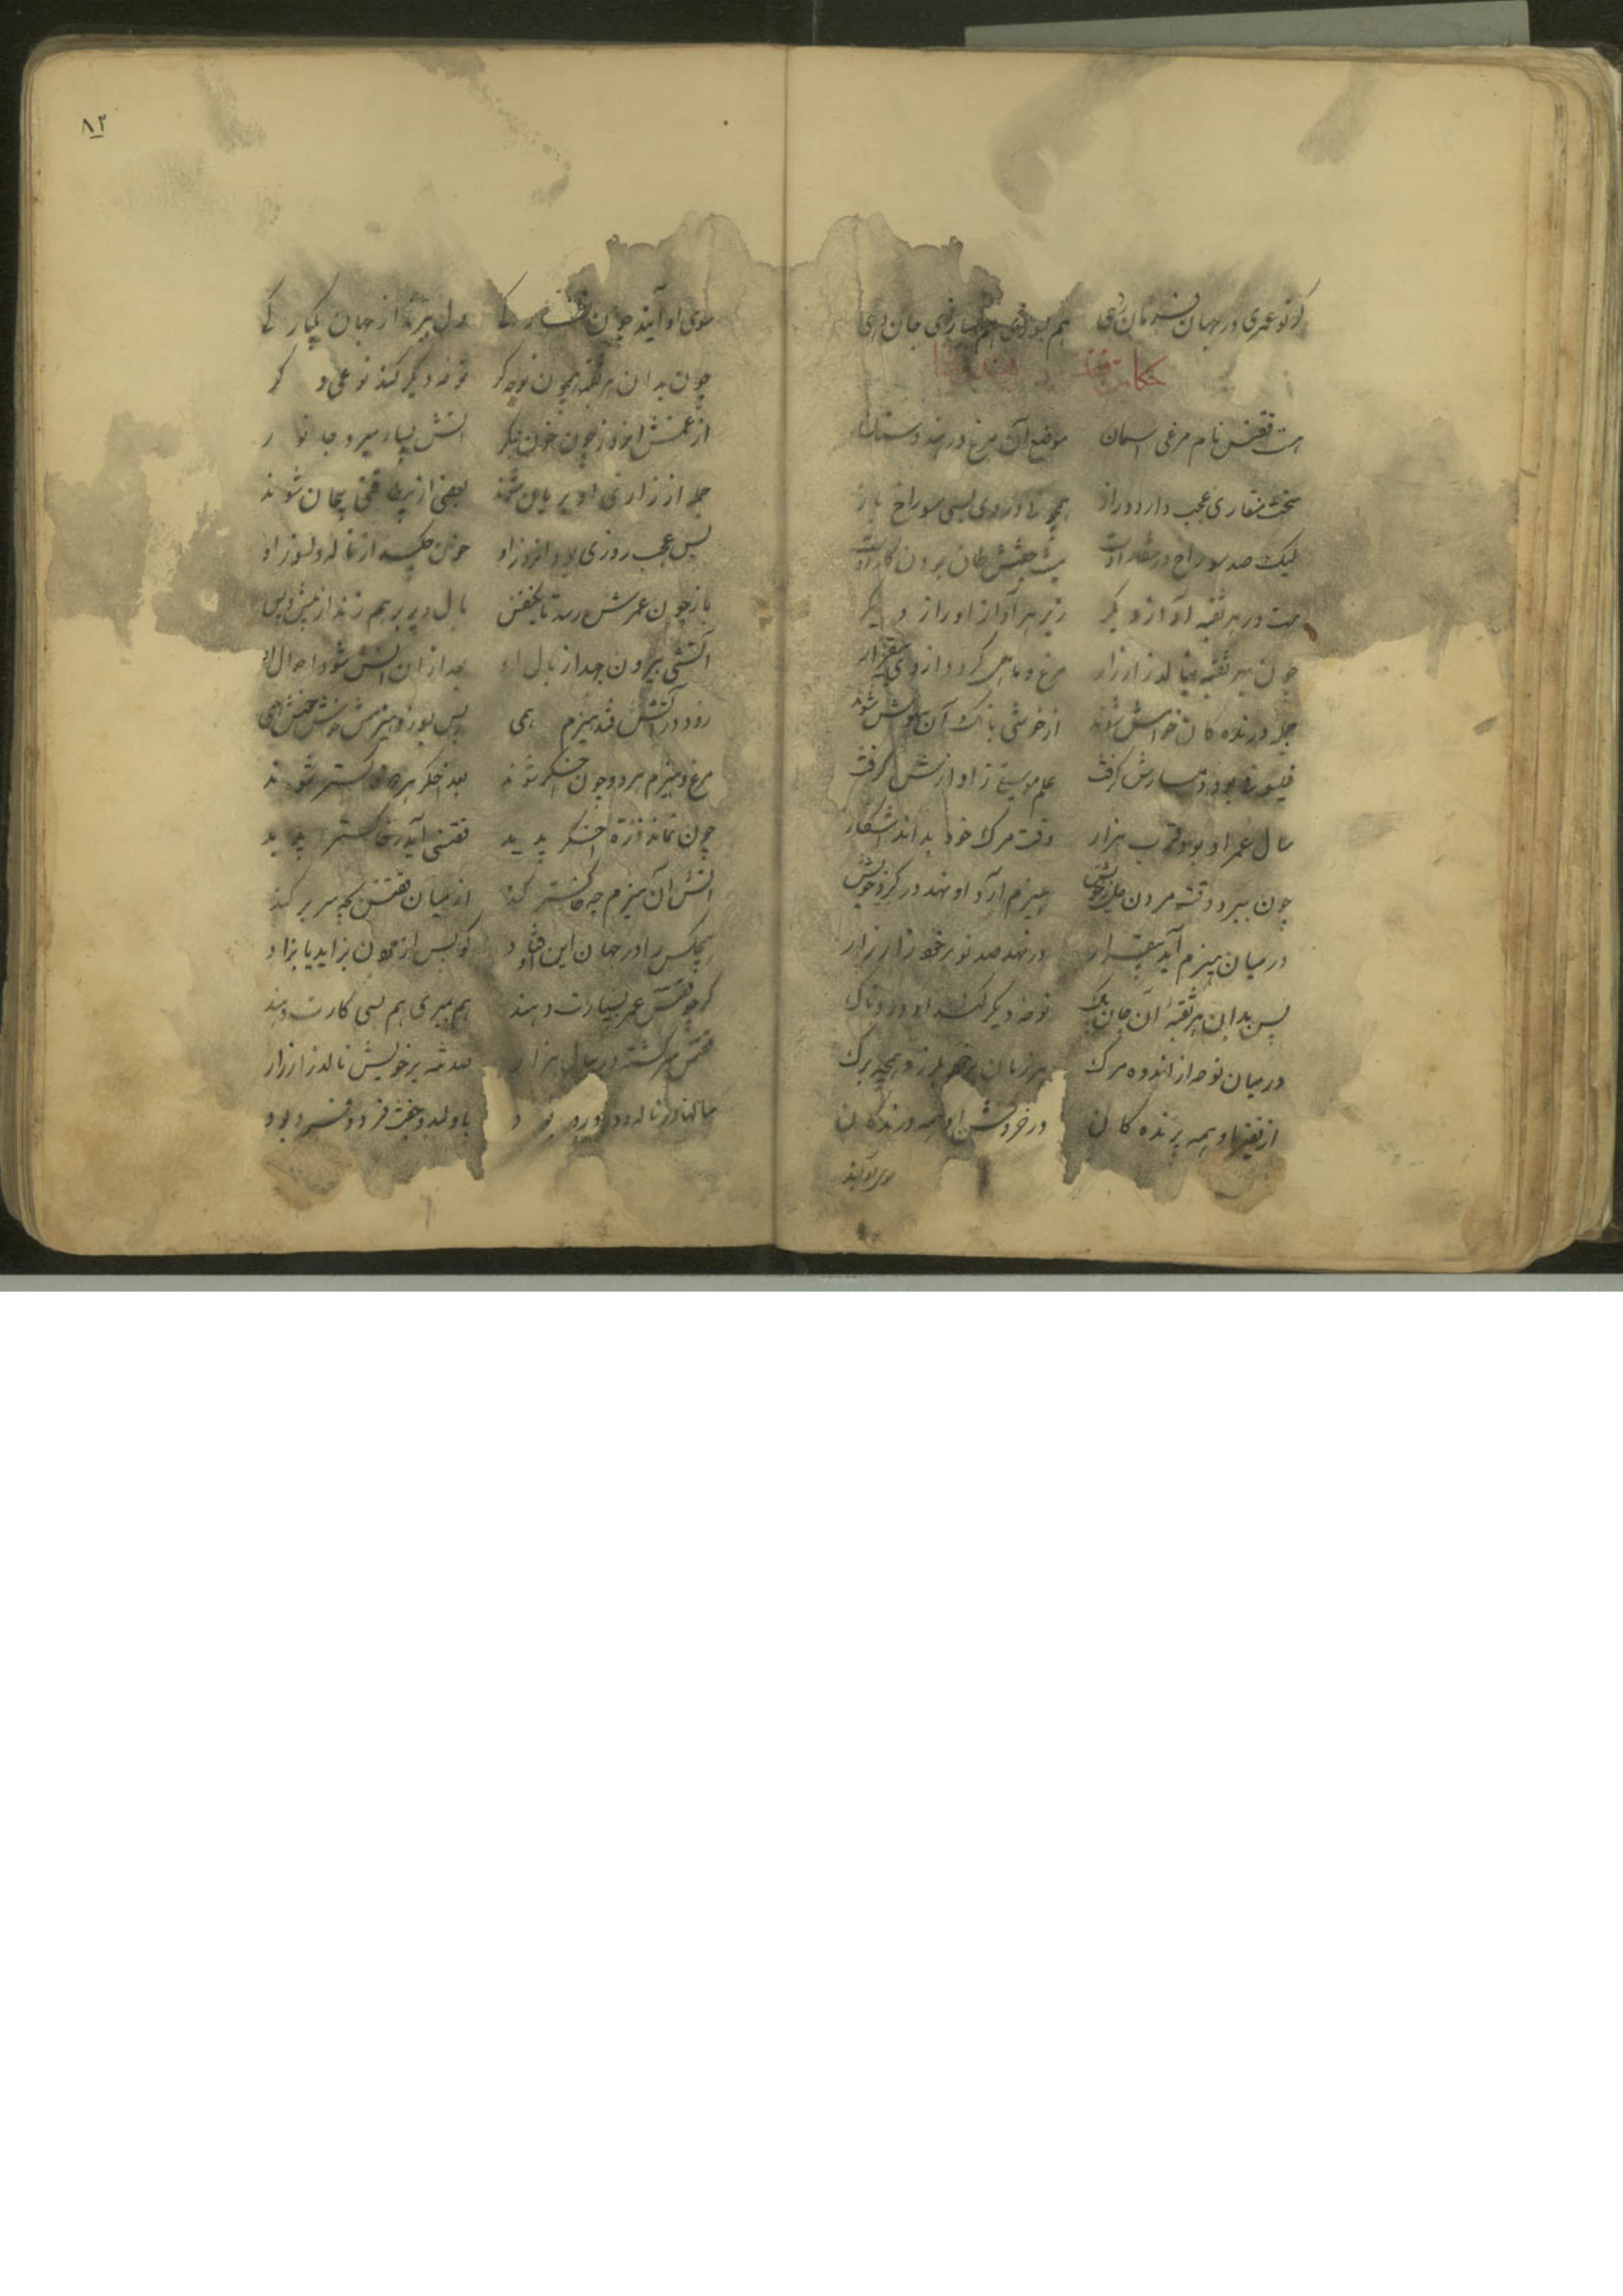 گر تو عمری در جهان فرمان دهی هم بسوزی هم بزاری جان دهی
حکایت ققنس
هست ققنس نام مرغی دلستان موضع آن مرغ در هندوستان
سخت منقاری عجب دارد دراز همچو نی در وی بسی سوراخ باز
لیک صد سوراخ در منقار اوست نیست جفتش طاق بودن کار اوست
هست در هر ثقبه آواز دیگر زیر هر آواز او راز دیگر
چون بهر ثقبه بنالد زار زار مرغ و ماهی گردد از وی بیقرار
جمله درنده کان خامش شوند از خوشی بانک آن بیهوش شوند
فیلسوفی بود دمسازش گرفت علم موسیقی ز آوازش گرفت
سال عمر او بود قرب هزار وقت مرک خود بداند اشکار
چون ببرد وقت مردن دل ز خویش هیزم آرد او نهد در گرد خویش
در میان هیزم آید بیقرار در نهد صد نوبر خود زار زار
پس بدان هر ثقبه آن جان پاک نوحه دیگر کند او دردناک
در میان نوحه از اندوه مرک هر زمان بر خود بلرزد همچو برک
از نفیر او همه پرنده کان در خروش او همه درنده کان
سوی او آیند
۸۲
سوی او آیند چون نظارگی دل ببرند از جهان یکبارگی
چون بدان هر ثقبه همچون نوحه گر نوحه دیگر کند نوعی دگر
از غمش انروز خون جگر پیش میرد جانور
جمله از زاری او بریان شوند بعضی از بی طاقتی بیجان شوند
بس عجب روزی بود انروز او خون چکد از ناله دلسوز او
باز چون عمرش رسد تا یکنفس بال و پر بر هم زند از پیش و پس
آتشی بیرون جهد از بال او بعد از ان اتش شود احوال او
زود در آتش فتد هیزم همی پس بسوزد هیزمش خوش خوش همی
مرغ و هیزم هر دو چون اخگر شوند بعد اخگر هر دو خاکستر شوند
چون نماند ذره اخگر پدید ققنسی آید ز خاکستر پدید
اتش آن هیزم چو خاکستر کند از میان ققنس بچه سر بر کند
هیچکس را در جهان این اوفتاد کو پس از مردن بزاید یا بزاد
گر چو ققنس عمر بسیارت دهند هم بمیری هم بسی کارت دهند
ققنس سرگشته در سال هزار صد تنه بر خویش نالد زار زار
سالها در ناله و در درد بود با ولد و جفت فرد و فرد بود